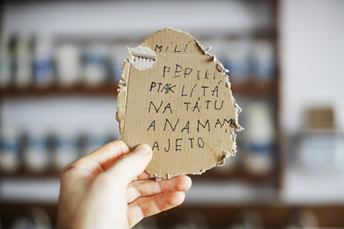 MILÍ
PEPIKI
PTÁK LÍTÁ
NA TÁTU
A NA MAM
A JE TO